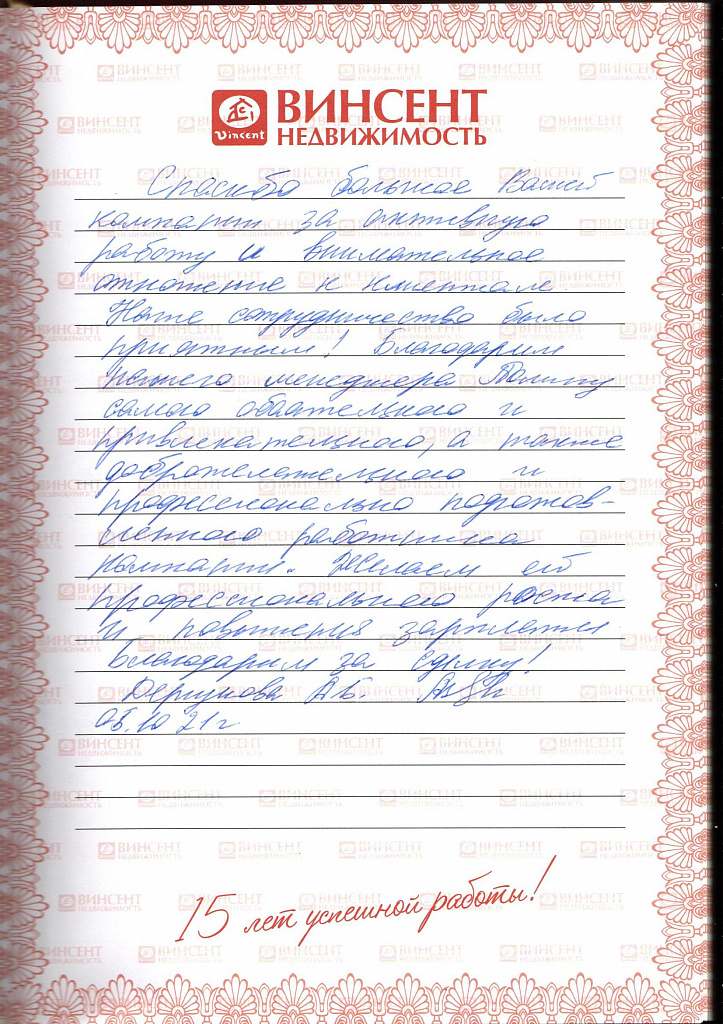 Vincent
ВИНСЕНТ
НЕДВИЖИМОСТЬ
Спасибо большое Вашей
компании за активную
работу и внимательное
отношение к клиентам
Наше сотрудничество было
приятным! Благодарим
нашего менеджера
самого обаятельного и
привлекательного, а также
доброжелательного и
профессионально подготов-
ленного работника
компании. Желаем ей
профессионального роста
и повышения зарплаты
Благодарим за сделку!
А.Б.
05.10 21г
15 лет успешной работы!